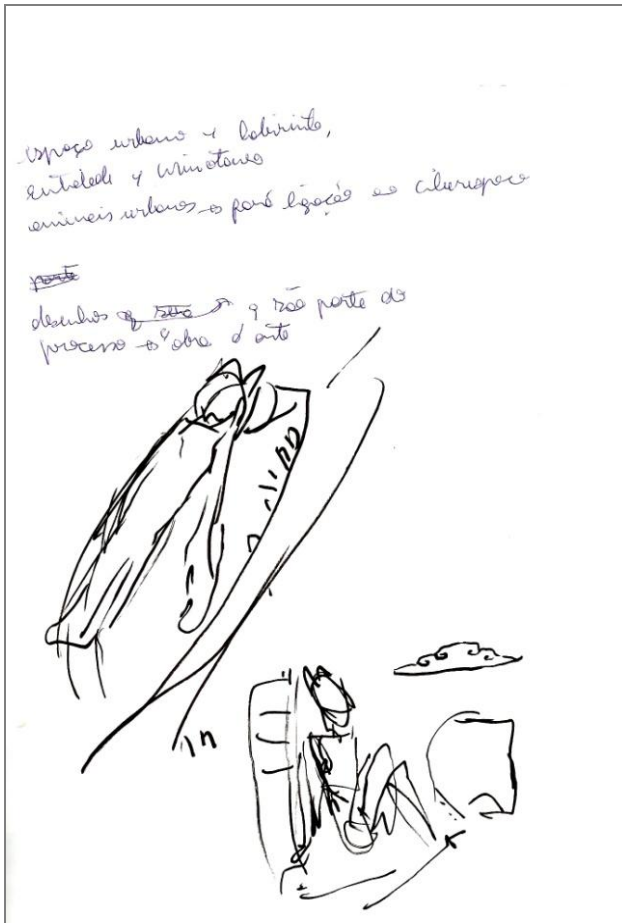 espaço urbano y labirinto,
y minotauro
animais urbanos → ligação ao ciberespaço
desenhos q são parte do
processo → "obra d'arte